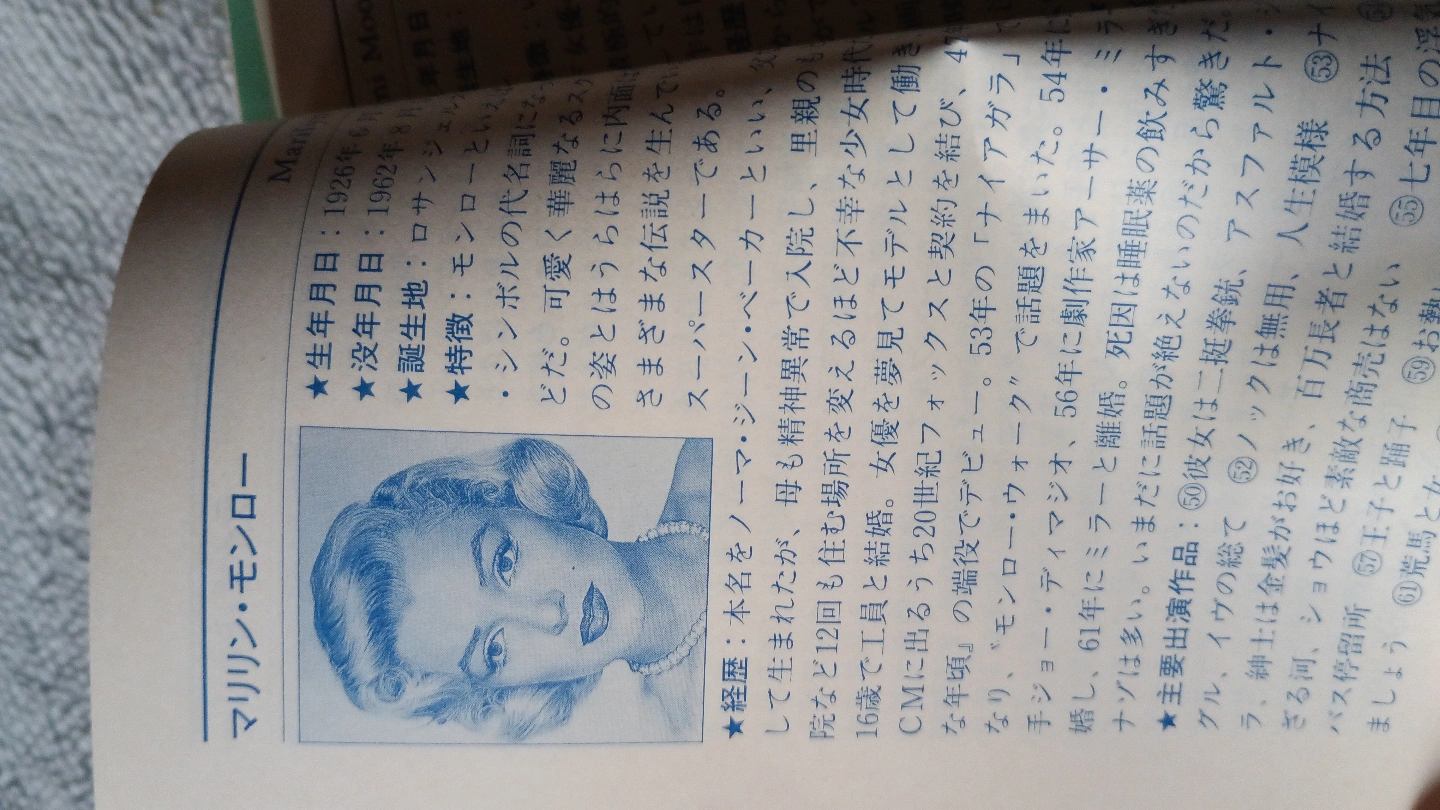 マリリン・モンロー
Mari
★生年月日：1926年6月
★没年月日：1962年8月
★誕生地：ロサンジェル
★特徴：モンローといえば
・シンボルの代名詞にな
どだ。可愛く華麗なるスク
の姿とはうらはらに内面は
さまざまな伝説を生んで
スーパースターである。
★経歴：本名をノーマ・ジーン・ベーカーといい、父
して生まれたが、母も精神異常で入院し、里親のも
院など12回も住む場所を変えるほど不幸な少女時代
16歳で工員と結婚。女優を夢見てモデルとして働き
CMに出るうち20世紀フォックスと契約を結び、47
な年頃』の端役でデビュー。53年の「ナイアガラ」で
なり、〝モンロー・ウォーク〟で話題をまいた。54年に
手ジョー・ディマジオ、56年に劇作家アーサー・ミラ
婚し、61年にミラーと離婚。死因は睡眠薬の飲みすぎ
ナゾは多い。いまだに話題が絶えないのだから驚きだ。
★主要出演作品：㊿彼女は二挺拳銃、アスファルト・ジ
グル、イヴの総て ㊾ノックは無用、人生模様 53ナイ
ラ、紳士は金髪がお好き、百万長者と結婚する方法
ざる河、ショウほど素敵な商売はない 55七年目の浮気
バス停留所 57王子と踊子 59お熱い
ましょう 61荒馬と女